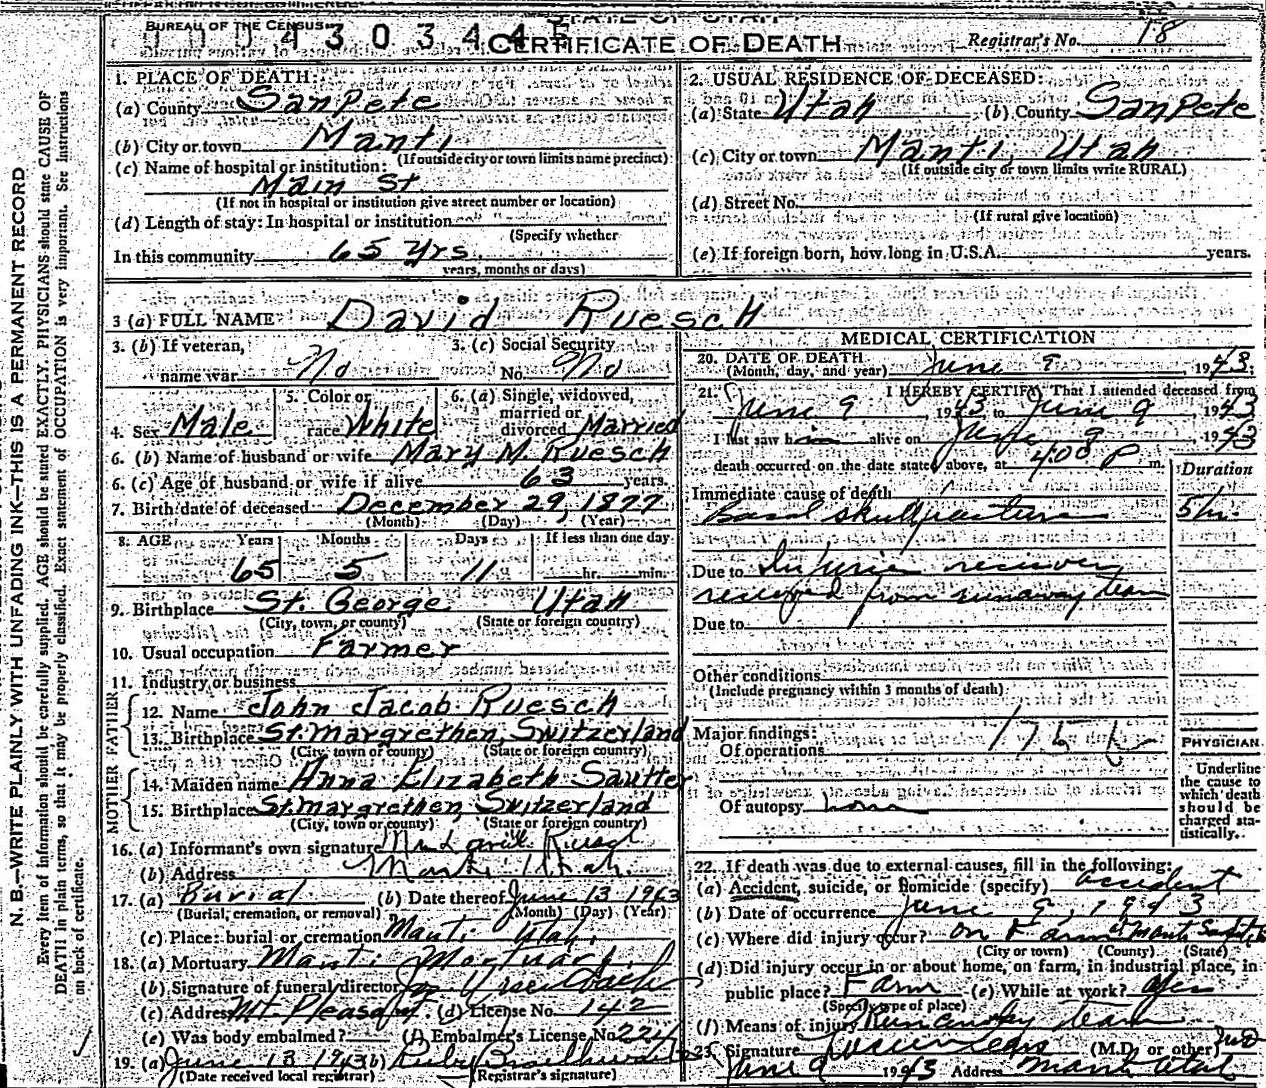 BUREAU OF THE CENSUS
STATE OF UTAH
CERTIFICATE OF DEATH
Registrar's No. 18
N. B.—WRITE PLAINLY WITH UNFADING INK—THIS IS A PERMANENT RECORD
Every item of information should be carefully supplied. AGE should be stated EXACTLY. PHYSICIANS should state CAUSE OF
DEATH in plain terms, so that it may be properly classified. Exact statement of OCCUPATION is very important. See instructions
on back of certificate.
1. PLACE OF DEATH:
(a) County SanPete
(b) City or town Manti
(If outside city or town limits name precinct)
(c) Name of hospital or institution:
Main St.
(If not in hospital or institution give street number or location)
(d) Length of stay: In hospital or institution
(Specify whether
In this community 65 yrs.
years, months or days)
2. USUAL RESIDENCE OF DECEASED:
(a) State Utah (b) County SanPete
(c) City or town Manti, Utah
(If outside city or town limits write RURAL)
(d) Street No.
(If rural give location)
(e) If foreign born, how long in U.S.A. years.
3 (a) FULL NAME David Ruesch
3. (b) If veteran, name war No
3. (c) Social Security No. No
4. Sex Male
5. Color or race White
6. (a) Single, widowed, married or divorced Married
6. (b) Name of husband or wife Mary M. Ruesch
6. (c) Age of husband or wife if alive 63 years.
7. Birth date of deceased December 29, 1877
(Month) (Day) (Year)
8. AGE Years Months Days If less than one day
65 5 11 hr. min.
9. Birthplace St. George Utah
(City, town, or county) (State or foreign country)
10. Usual occupation Farmer
11. Industry or business
FATHER
12. Name John Jacob Ruesch
13. Birthplace St. Margrethen, Switzerland
(City, town or county) (State or foreign country)
MOTHER
14. Maiden name Anna Elizabeth Sautter
15. Birthplace St. Margrethen, Switzerland
(City, town or county) (State or foreign country)
16. (a) Informant's own signature Ruesch
(b) Address Manti Utah
17. (a) Burial (b) Date thereof June 13 1943
(Burial, cremation, or removal) (Month) (Day) (Year)
(c) Place: burial or cremation Manti Utah.
18. (a) Mortuary Manti Mortuary
(b) Signature of funeral director
(c) Address Mt. Pleasant. (d) License No. 142
(e) Was body embalmed? (f) Embalmer's License No. 224
19. (a) June 13 1943 (b) Ruby Braithwaite
(Date received local registrar) (Registrar's signature)
MEDICAL CERTIFICATION
20. DATE OF DEATH June 9, 1943
(Month, day, and year)
21. I HEREBY CERTIFY That I attended deceased from
June 9, 1943 to June 9, 1943
I last saw him alive on June 9, 1943
death occurred on the date stated above, at 4:00 P m.
Duration
Immediate cause of death
Basal skull fracture 5 hr.
Due to Injuries
received from runaway team
Due to
Other conditions
(Include pregnancy within 3 months of death)
Major findings:
Of operations
Of autopsy none
PHYSICIAN
Underline
the cause to
which death
should be
charged sta-
tistically.
22. If death was due to external causes, fill in the following:
(a) Accident, suicide, or homicide (specify) accident
(b) Date of occurrence June 9, 1943
(c) Where did injury occur? on Farm Manti
(City or town) (County) (State)
(d) Did injury occur in or about home, on farm, in industrial place, in
public place? Farm (e) While at work? yes
(Specify type of place)
(f) Means of injury Runaway team
23. Signature Sears (M.D. or other) MD
June 9 1943 Address Manti Utah